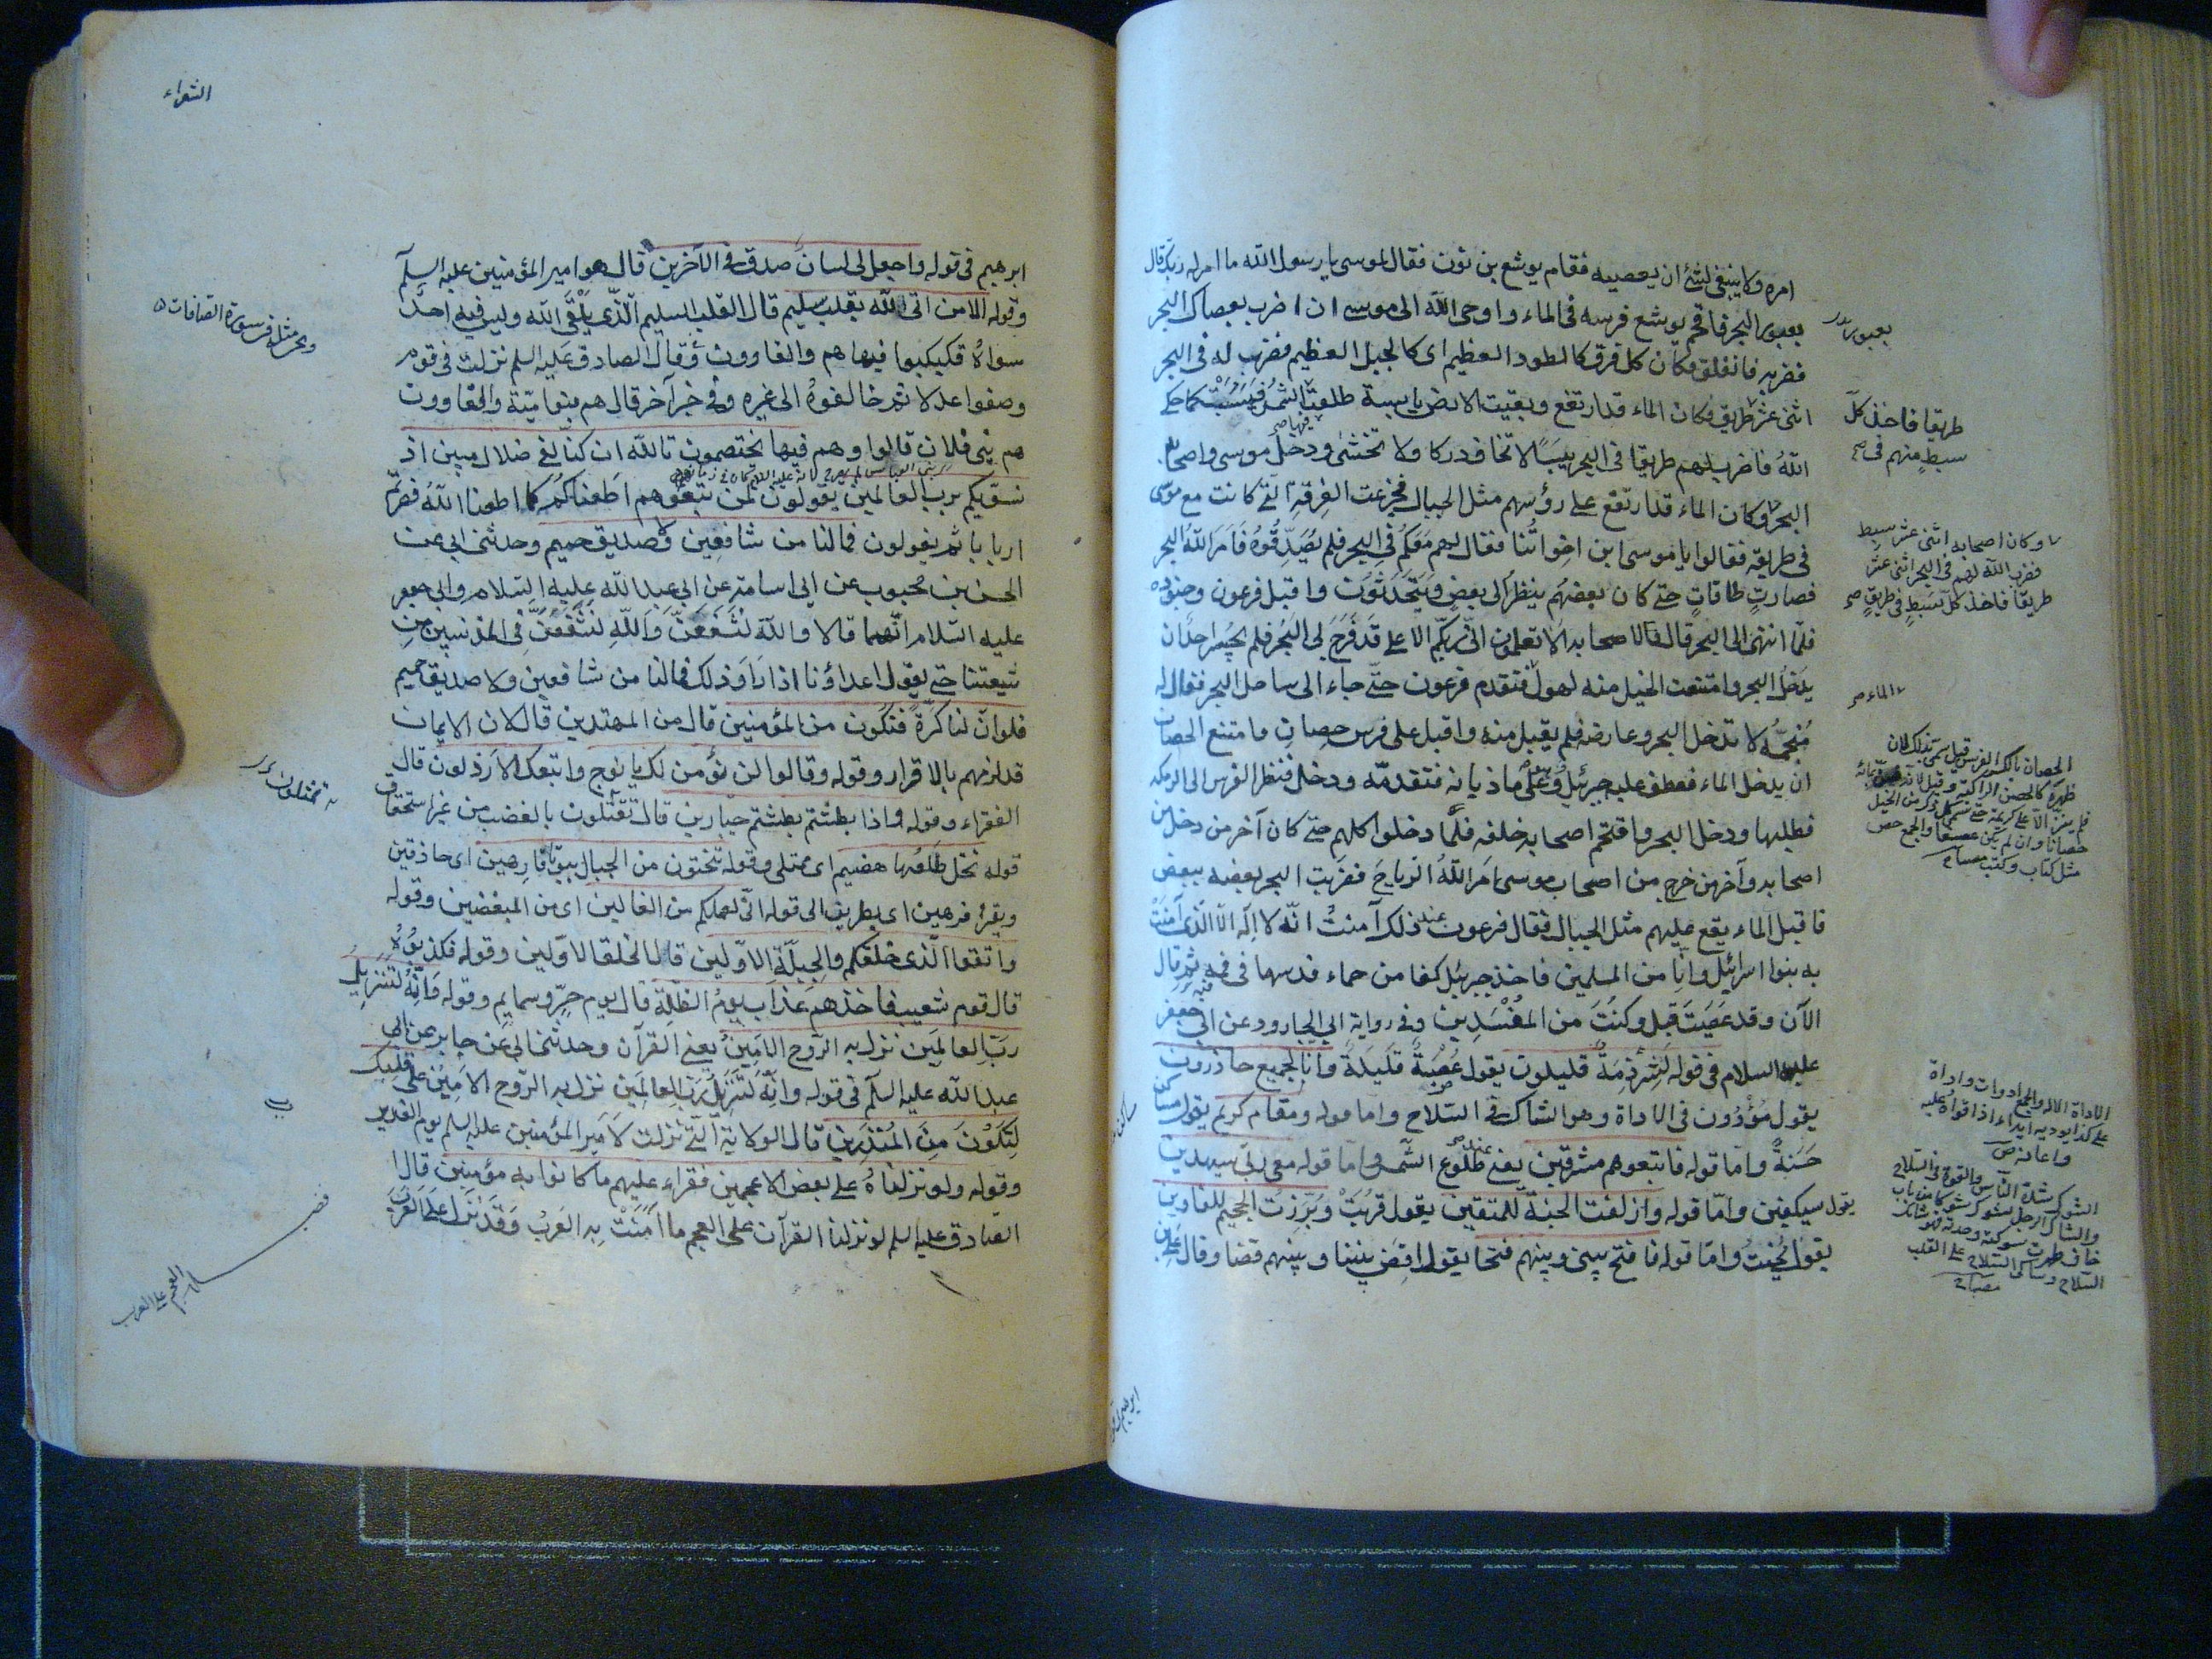 امره ولا ينبغى لشئ ان يعصيه فقام يوشع بن نون فقال لموسى يا رسول الله ما امرك ربك قال
بعبور البحر فاقحم يوشع فرسه فى الماء واوحى الله الى موسى ان اضرب بعصاك البحر
فضربه فانفلق فكان كل فرق كالطود العظيم اى كالجبل العظيم فضرب له فى البحر
اثنى عشر طريقا فكان الماء قد ارتفع وبقيت الارض يابسة طلعت الشمس فيبست كما حكى
الله فاضرب لهم طريقا فى البحر يبسا لا تخاف دركا ولا تخشى ودخل موسى واصحابه
البحر وكان الماء قد ارتفع على رؤسهم مثل الجبال فجزعت الفرقة التى كانت مع موسى
فى طريقه فقالوا يا موسى اين اخواننا فقال لهم معكم فى البحر فلم يصدقوه فامر الله البحر
فصارت طاقات حتى كان بعضهم ينظر الى بعض ويتحدثون واقبل فرعون وجنوده
فلما انتهى الى البحر قال لاصحابه الا تعلمون انى ربكم الاعلى قد فرج لى البحر فلم يجسر احد ان
يدخل البحر وامتنعت الخيل منه لهول فتقدم فرعون حتى جاء الى ساحل البحر فقال له
منجمه لا تدخل البحر وعارضه فلم يقبل منه واقبل على فرس حصان فامتنع الحصان
ان يدخل الماء فعطف عليه جبرئيل وهو على ماذيانه فتقدمه ودخل فنظر الفرس الى الرمكه
فطلبها ودخل البحر واقتحم اصحابه خلفه فلما دخلوا كلهم حتى كان آخر من دخل من
اصحابه وآخر من خرج من اصحاب موسى امر الله الرياح فضربت البحر بعضه ببعض
فاقبل الماء يقع عليهم مثل الجبال فقال فرعون عند ذلك آمنت انه لا اله الا الذى آمنت
به بنوا اسرائيل وانا من المسلمين فاخذ جبرئيل كفا من حماء فدسها فى فيه ثم قال
الآن وقد عصيت قبل وكنت من المفسدين وفى رواية ابى الجارود عن ابى جعفر
عليه السلام فى قوله لشرذمة قليلون يقول عصبة قليلة وانا لجميع حاذرون
يقول مؤدون فى الاداة وهو الشاك فى السلاح واما قوله ومقام كريم يقول مساكن
حسنة واما قوله فاتبعوهم مشرقين يعنى عند طلوع الشمس واما قوله معى ربى سيهدين
يقول سيكفين واما قوله وازلفت الجنة للمتقين يقول قربت وبرزت الجحيم للغاوين
يقول نحيت واما قوله فافتح بينى وبينهم فتحا يقول اقض بينى وبينهم قضا وقال على بن
بعبور
طريقا فاخذ كل
سبط منهم فى
وكان اصحابه اثنى عشر سبط
فضرب الله لهم فى البحر اثنى عشر
طريقا فاخذ كل سبط فى طريق
الماء
مثل كتاب وكتب مصباح
الاداة الاله والجمع ادوات واداة
على كذا يوديه ايداء اذا قواه عليه
واعانه
السلاح وشاكى السلاح على القلب
مصباح
الشعراء
ابرهيم فى قوله واجعل لى لسان صدق فى الآخرين قال هو امير المؤمنين عليه السلم
وقوله الا من اتى الله بقلب سليم قال القلب السليم الذى يلقى الله وليس فيه احد
سواه فكبكبوا فيها هم والغاوون وقال الصادق عليه السلم نزلت فى قوم
وصفوا عدلا ثم خالفوه الى غيره وفى خبر آخر قال هم بنو امية والغاوون
هم بنى فلان قالوا وهم فيها يختصمون تالله ان كنا لفى ضلال مبين اذ
نسويكم برب العالمين يقولون لمن تبعوهم اطعناكم كما اطعنا الله فصرتم
اربابا ثم يقولون فما لنا من شافعين ولا صديق حميم وحدثنى ابى عن
الحسن بن محبوب عن ابى اسامة عن ابى عبد الله عليه السلام وابى جعفر
عليه السلام انهما قالا والله لنشفعن والله لنشفعن فى المذنبين من
شيعتنا حتى يقول اعداؤنا اذا راو ذلك فما لنا من شافعين ولا صديق حميم
فلو ان لنا كرة فنكون من المؤمنين قال من المهتدين قال لان الايمان
قد لزمهم بالاقرار وقوله وقالوا لن نؤمن لك يا نوح واتبعك الارذلون قال
الفقراء وقوله واذا بطشتم بطشتم جبارين قال تقتلون بالغضب من غير استحقاق
قوله نخل طلعها هضيم اى ممتلى وقوله تنحتون من الجبال بيوتا فارهين اى حاذقين
ويقرء فرهين اى بطرين الى قوله انى لعملكم من القالين اى من المبغضين وقوله
واتقوا الذى خلقكم والجبلة الاولين قال الخلق الاولين وقوله فكذبوه
قال قوم شعيب فاخذهم عذاب يوم الظلة قال يوم حر وسمايم وقوله وانه لتنزيل
رب العالمين نزل به الروح الامين يعنى القرآن وحدثنى ابى عن جابر عن ابى
عبد الله عليه السلم فى قوله وانه لتنزيل رب العالمين نزل به الروح الامين على قلبك
لتكون من المنذرين قال الولاية التى نزلت لامير المؤمنين عليه السلم يوم الغدير
وقوله ولو نزلناه على بعض الاعجمين فقراء عليهم ما كانوا به مؤمنين قال
الصادق عليه السلم لو نزلنا القرآن على العجم ما امنت به العرب وقد نزل على العرب
سورة الصافات
العجم على العرب